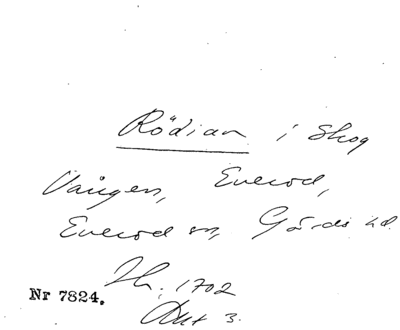 Rödian i Skog
Vången, Everöd,
Everöd sn, Gärds hd.
Ih. 1702
Akt 3.
Nr 7824.